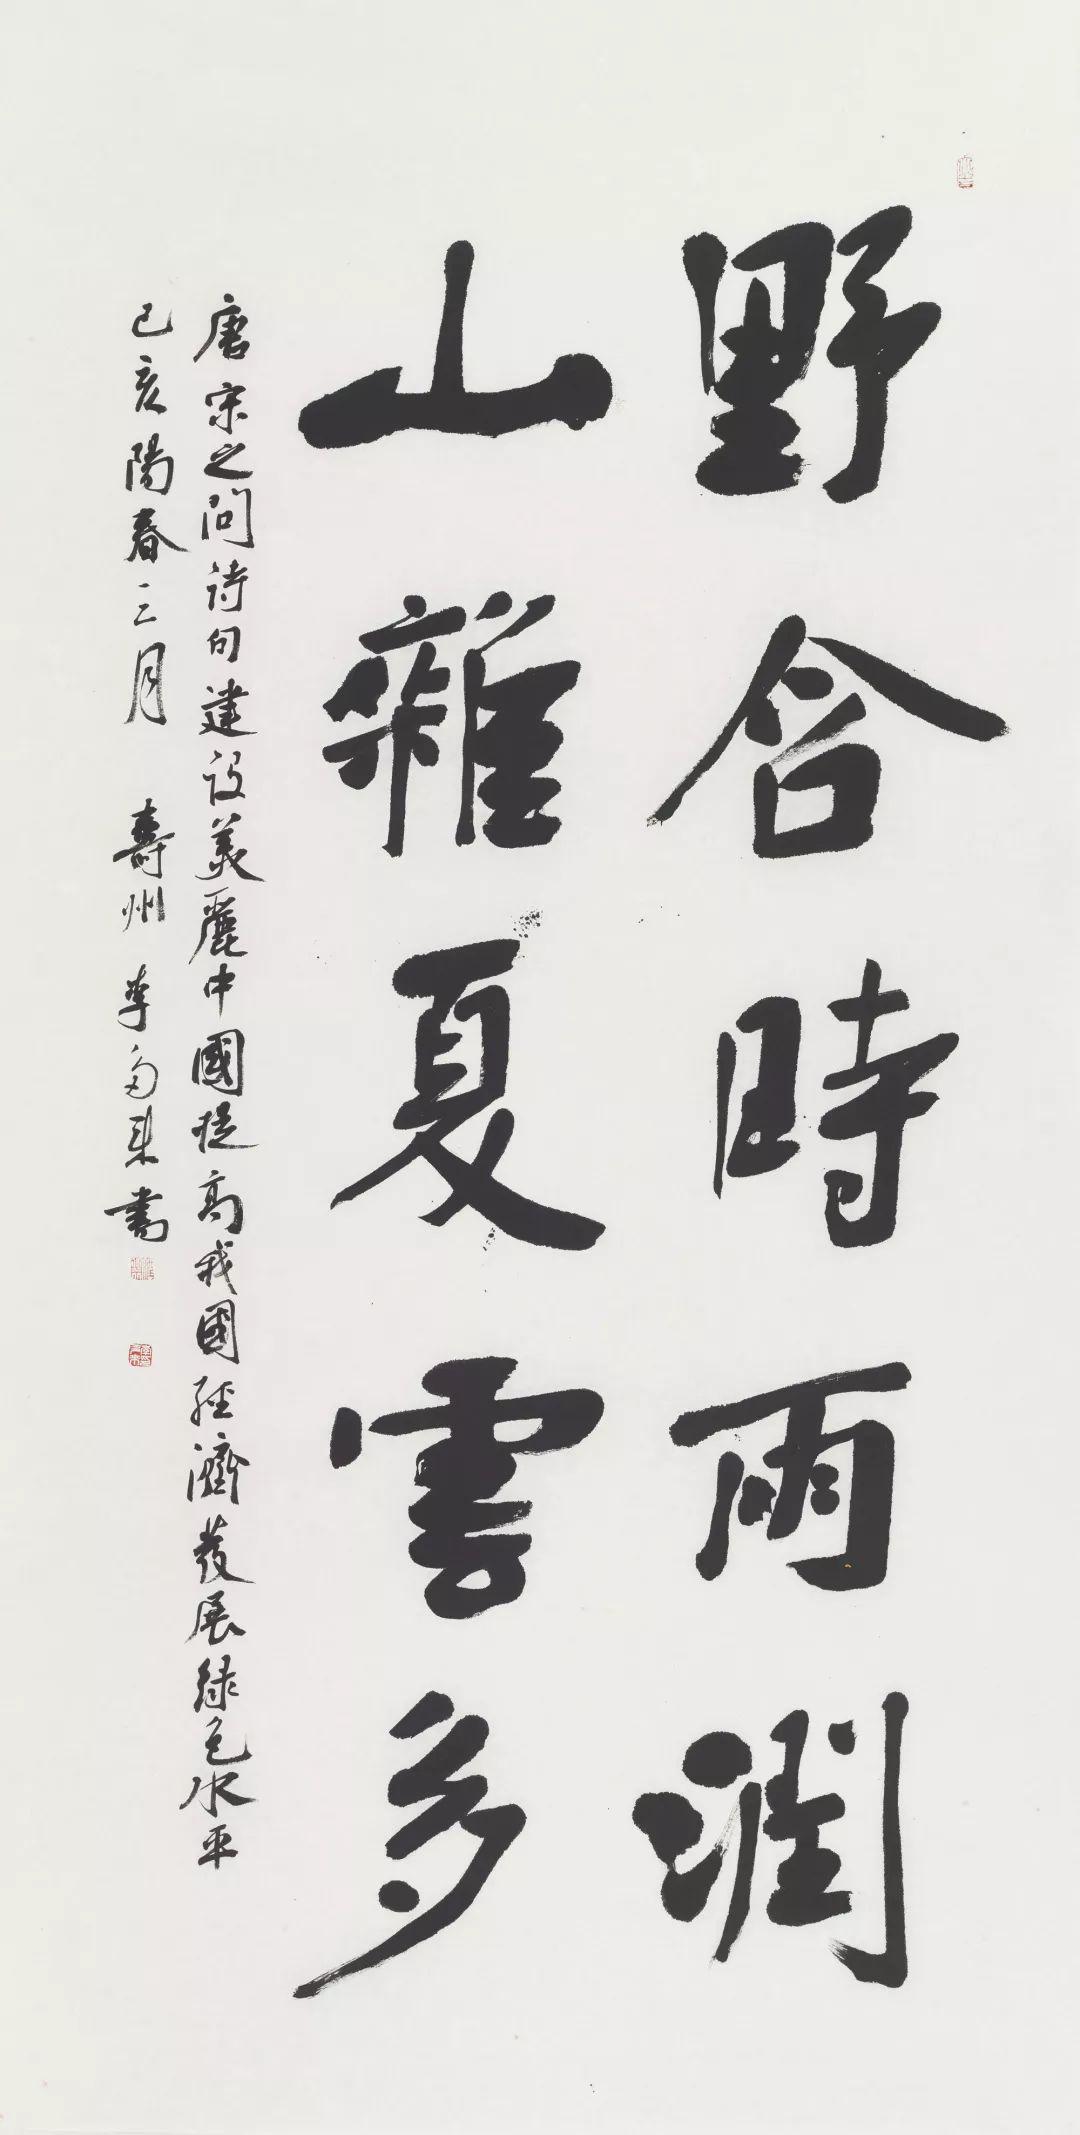 野含時雨潤
山雜夏雲多
唐宋之问诗句建设美麗中國提高我國经濟发展绿色水平
己亥陽春三月 壽州 李多来書